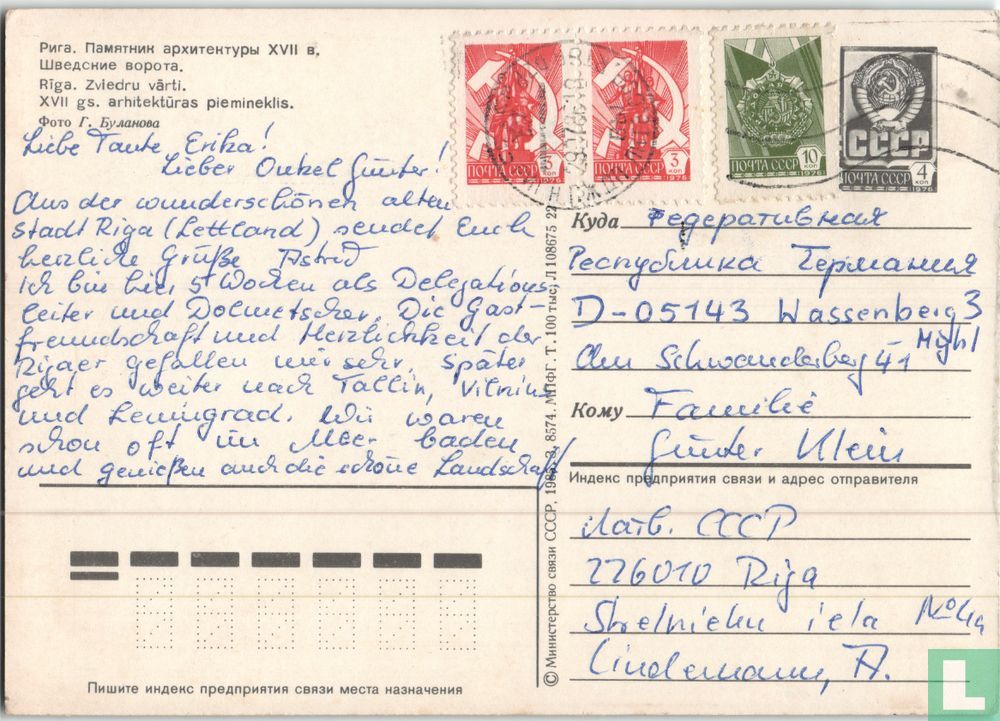 Рига. Памятник архитектуры XVII в.
Шведские ворота.
Rīga. Zviedru vārti.
XVII gs. arhitektūras piemineklis.
Фото Г. Буланова
Liebe Tante Erika!
Lieber Onkel Günter!
Aus der wunderschönen alten
Stadt Riga (Lettland) sendet Euch
herzliche Grüße Astrid
Ich bin hier 5 Wochen als Delegations-
leiter und Dolmetscher. Die Gast-
freundschaft und Herzlichkeit der
Rigaer gefallen mir sehr. Später
geht es weiter nach Tallin, Vilnius
und Leningrad. Wir waren
schon oft im Meer baden
und genießen auch die schöne Landschaft
ПОЧТА СССР 3 КОП 1976
ПОЧТА СССР 3 КОП 1976
ПОЧТА СССР 10 КОП 1976
СССР
ПОЧТА СССР 4 КОП 1976
Куда Федеративная
Республика Германия
D-05143 Wassenberg 3
Am Schwanderberg 41
Кому Familie
Günter Klein
Индекс предприятия связи и адрес отправителя
Латв. ССР
226010 Riga
Strelnieku iela No 4a
Lindemann, A.
© Министерство связи СССР, 1986. З. 8574. МПФГ. Т. 100 тыс. Л 108675 22
Пишите индекс предприятия связи места назначения
L